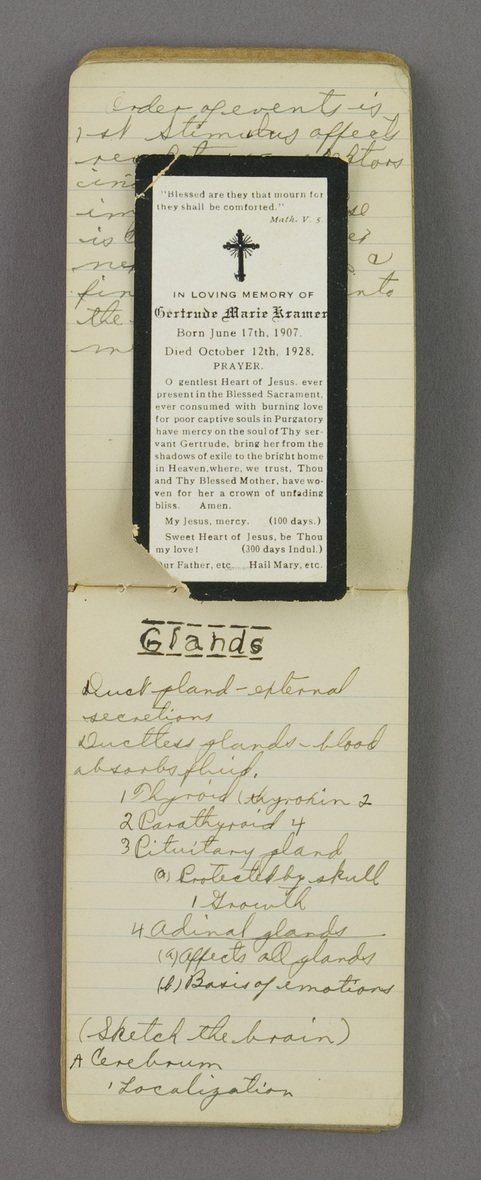 Order of events is
1-st Stimulus affects
"Blessed are they that mourn for
they shall be comforted."
Math. V. 5.
IN LOVING MEMORY OF
Gertrude Marie Kramer
Born June 17th, 1907.
Died October 12th, 1928.
PRAYER.
O gentlest Heart of Jesus, ever
present in the Blessed Sacrament,
ever consumed with burning love
for poor captive souls in Purgatory
have mercy on the soul of Thy ser-
vant Gertrude, bring her from the
shadows of exile to the bright home
in Heaven, where, we trust, Thou
and Thy Blessed Mother, have wo-
ven for her a crown of unfading
bliss. Amen.
My Jesus, mercy. (100 days.)
Sweet Heart of Jesus, be Thou
my love! (300 days Indul.)
Our Father, etc. Hail Mary, etc.
is
the
Glands
Duct gland - external
secretions
Ductless glands - blood
absorbs fluid.
1 Thyroid (thyroxin 2
2 Parathyroid 4
3 Pituitary gland
(a) Protected by skull
1 Growth
4 Adinal glands
(a) Affects all glands
(b) Basis of emotions
(Sketch the brain)
A Cerebrum
1 Localization